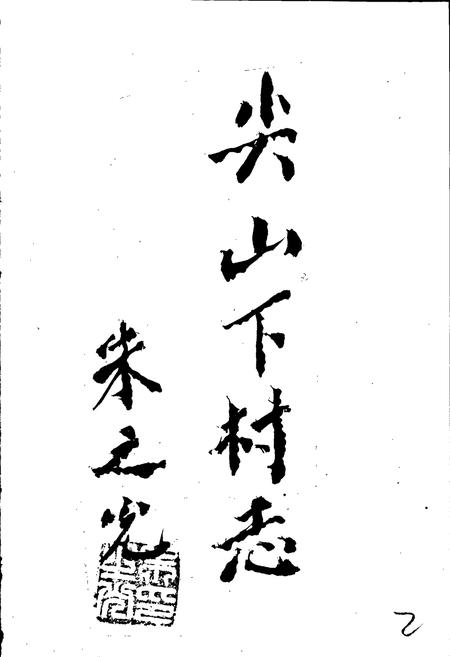 尖山下村志
朱之光